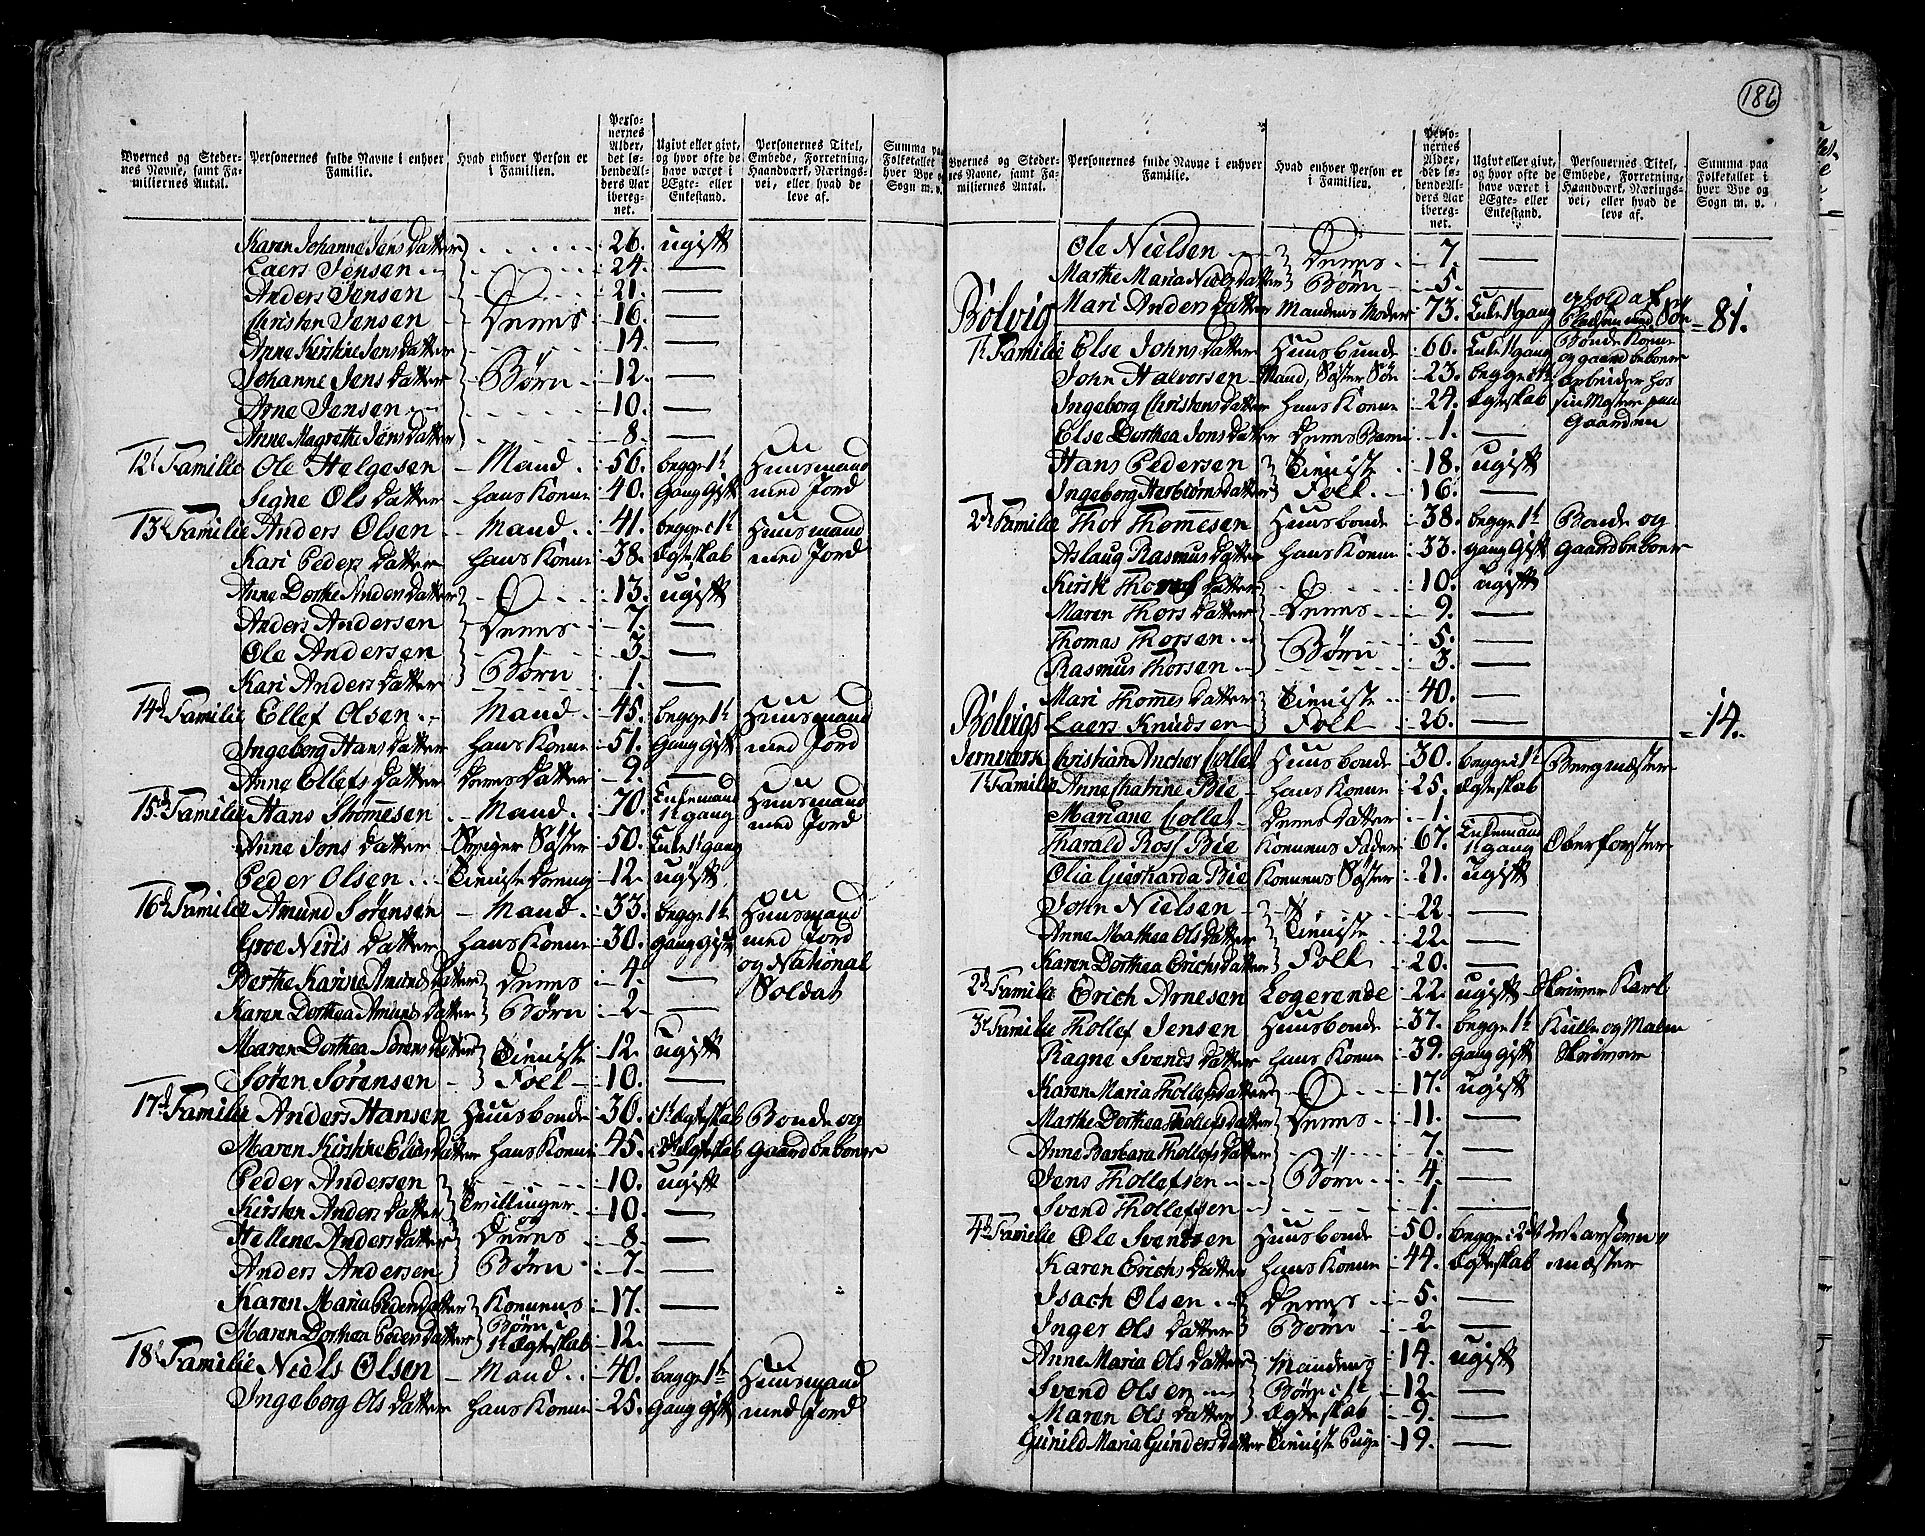 186
Byernes og Stedernes Navne, samt Familiernes Antal.
Personernes fulde Navne i enhver Familie.
Hvad enhver Person er i Familien.
Personernes Alder, det løbende Alders Aar iberegnet.
Ugivt eller givt, og hvor ofte de have været i Ægte- eller Enkestand.
Personernes Titel, Embede, Forretning, Haandværk, Næringsvei, eller hvad de leve af.
Summa paa Folketallet i hver Bye
Sogn m. v.
Karen Johanne Jens Datter 26. ugift
Laers Jensen 24. —
Anders Jensen 21. —
Christen Jensen Deres 16. —
Anne Kirstine Jens datter 14. —
Johanne Jens datter Børn 12. —
Arne Jensen 10. —
Anne Magrethe Jens datter 8. —
12t Familie Ole Helgesen Mand 56. begge 1t Huusmand
Signe Ols datter hans Konne 40. gang gift med Jord
13d Familie Anders Olsen Mand 41. begge i 1t Huusmand
Kari Peders datter hans Konne 38. ægteskab med Jord
Anne Dorthe Anders datter 13. ugift
Anders Andersen Deres 7. —
Ole Andersen 3. —
Kari Anders datter Børn 1. —
14d Familie Ellef Olsen Mand 45. begge 1t Huusmand
Ingeborg Hans datter hans Konne 51. gang gift med Jord
Anne Ellefs datter Deres datter 9. —
15d Familie Hans Thomesen Mand 70. Enkemand 1t gang Huusmand med Jord
Anne Jons datter Sviger Søster 50. Enke 1t gang
Peder Olsen Tieniste Dreng 12. ugift
16d Familie Amund Sørensen Mand 33. begge 1t Huusmand
Groe Niris datter hans Konne 30. gang gift med Jord
Berthe Karine Amunds datter Deres 4. — og National
Karen Dorthea Amunds datter Børn 2. — Soldat
Maren Dorthea Sørens datter Tieniste 12. ugift
Søren Sørensen Folk 10. —
17d Familie Anders Hansen Huusbonde 36. 1t ægteskab Bonde og
Maren Kirstine Elias datter hans Konne 45. 2d ægteskab gaardbeboer
Peder Andersen 10. ugift
Kirsten Anders datter Tvillinger 10. —
Hellene Anders datter og Deres 8. —
Anders Andersen Børn 7. —
Karen Maria Peders datter Konnens 17. —
Maren Dorthea Peders datter Børn i 1t ægteskab 12. —
18d Familie Niels Olsen Mand 40. begge 1t Huusmand
Ingeborg Ols datter hans Konne 25. gang gift med Jord
Byernes og Stedernes Navne, samt Familiernes Antal.
Personernes fulde Navne i enhver Familie.
Hvad enhver Person er i Familien.
Personernes Alder, det løbende Alders Aar iberegnet.
Ugivt eller givt, og hvor ofte de have været i Ægte- eller Enkestand.
Personernes Titel, Embede, Forretning, Haandværk, Næringsvei, eller hvad de leve af.
Summa paa Folketallet i hver Bye og Sogn m. v.
Ole Nielsen Deres 7. —
Marthe Maria Niels datter Børn 5. —
Bølvig Mari Anders datter Mandens Moder 73. Enke 1t gang 81.
1t Familie Else Johns datter Huusbonde 66. Enke 1t gang Bonde Konne og gaardbeboer
John Halvorsen Mand, Søster Søn 23. begge i 1t arbeider hos
Ingeborg Christens datter hans Konne 24. ægteskab sin Moster paa
Else Dorthea Jons datter Deres Barn 1. — Gaarden
Hans Pedersen Tieniste 18. ugift
Ingeborg Hesbiørns datter Folk 16. —
2d Familie Thor Thomesen Huusbonde 38. begge 1t Bonde og
Aslaug Rasmus datter hans Konne 33. gang gift Gaardbeboer
Kirsti Thors datter 10. ugift
Maren Thors datter Deres 9. —
Thomas Thorsen 5. —
Rasmus Thorsen Børn 3. —
Mari Thomes datter Tieniste 40. —
Bølvigs Laers Knudsen Folk 26. — 14.
Jernverk Christian Ancher Collet Huusbonde 30. begge i 1t Bergmester
1t Familie Anne Chatrine Bie hans Konne 25. ægteskab
Mariane Collet Deres datter 1. —
Tharald Ross Bie Konnens Fader 67. Enkemand 1t gang Oberforster
Olia Gierharda Bie Konnens Søster 21. ugift
John Nielsen 22. —
Anne Mathea Ols datter Tieniste 22. —
Karen Dorthea Erichs datter Folk 20. —
2d Familie Erich Arnesen Logerende 22. ugift Skriver Karl
3d Familie Thollef Jensen Huusbonde 37. begge 1t Kulle og Malm
Ragne Svends datter hans Konne 39. gang gift Skriver
Karen Maria Thollefs datter 17. ugift
Marthe Dorthea Thollefs datter Deres 11. —
Anne Barbara Thollefs datter 7. —
Jens Thollefsen Børn 4. —
Svend Thollefsen 1. —
4d Familie Ole Svendsen Huusbonde 50. begge i 2d
Karen Erichs datter hans Konne 44. ægteskab mæster
Isach Olsen Deres 5. —
Inger Ols datter Børn 2. —
Anne Maria Ols datter Mandens 14. ugift
Svend Olsen Børn i 1t 12. —
Maren Ols datter ægteskab 9. —
Gunild Maria Gunders datter Tieniste Pige 19. —